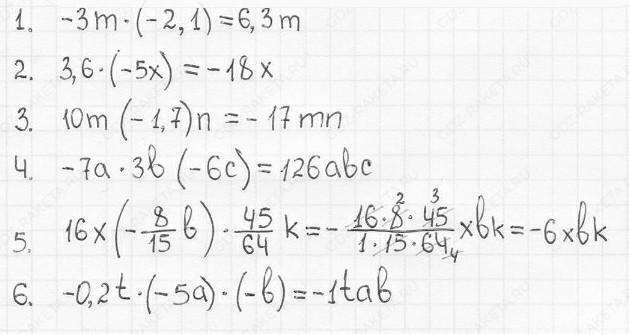 1. -3m·(-2,1)=6,3m
2. 3,6·(-5x)=-18x
3. 10m(-1,7)n=-17mn
4. -7a·3b(-6c)=126abc
5. 16x(-8/15 b)·45/64 k=-(16·8·45)/(1·15·64) xbk=-6xbk
2 3
4
6. -0,2t·(-5a)·(-b)=-1tab